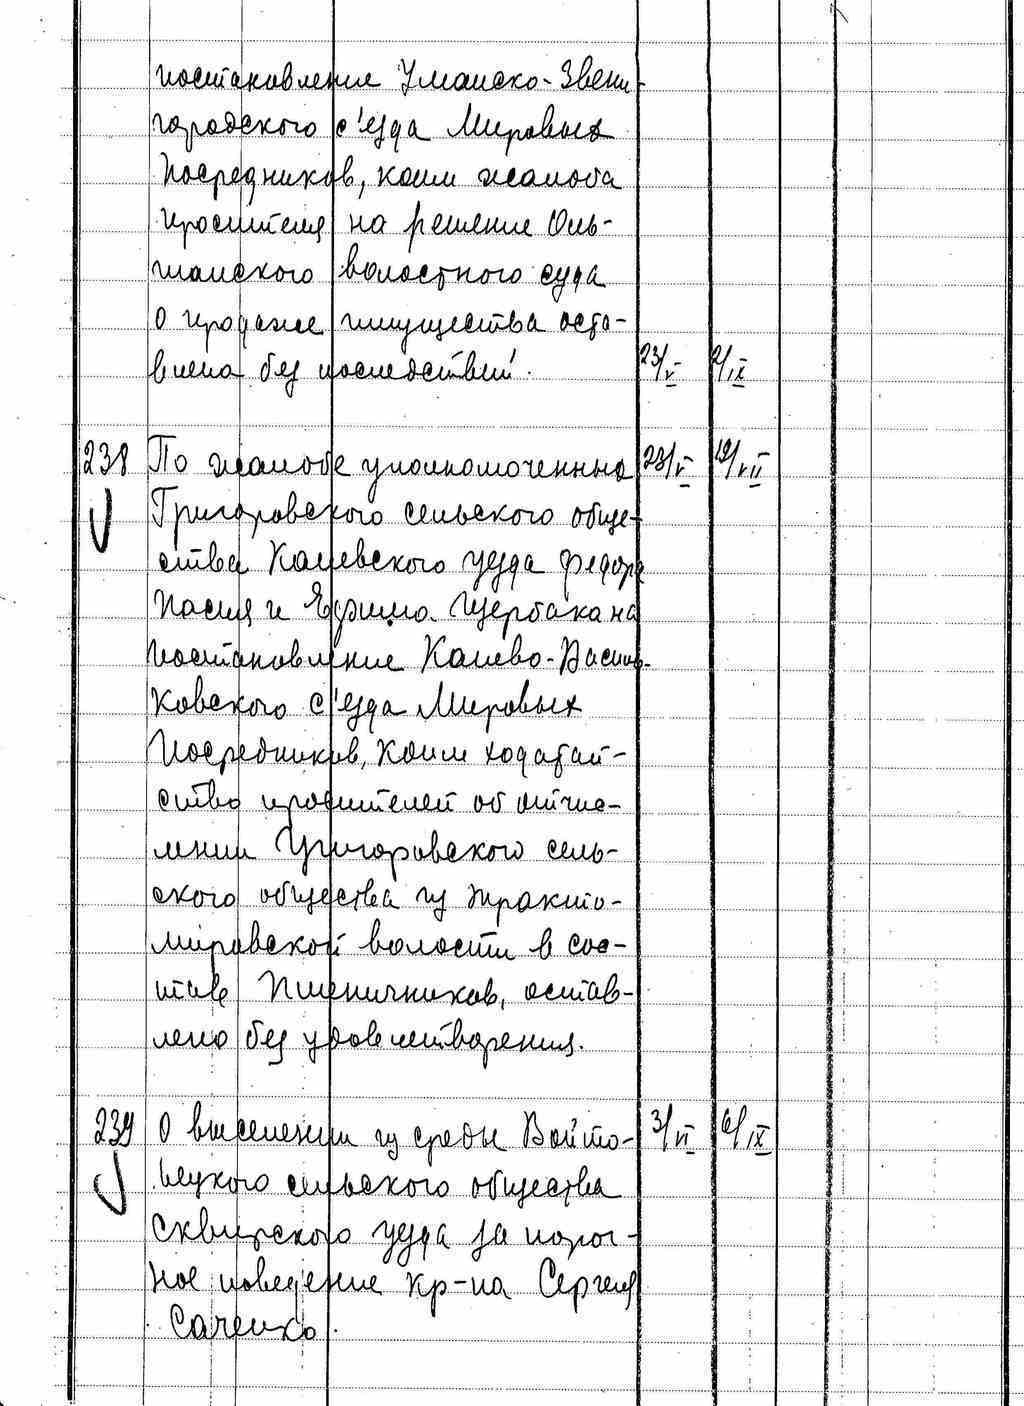 постановление Уманско-Звени-
городского с'езда Мировых
Посредников, коим жалоба
просителя на решение Оль-
шанского волостного суда
о продаже имущества оста-
влена без последствий. 23/V 2/IX
238 По жалобе уполномоченных 23/V 19/VII
Григоровского сельского обще-
ства Каневского уезда Федора
Пасия и Ефима Щербака на
постановление Канево-Василь-
ковского с'езда Мировых
Посредников, коим ходатай-
ство просителей об отчис-
лении Григоровского сель-
ского общества из Тракто-
мировской волости в сос-
тав Пшеничников, остав-
лено без удовлетворения.
239 О выселении из среды Войто- 3/VI 6/IX
вецкого сельского общества
Сквирского уезда за пороч-
ное поведение кр-на Сергея
Саченко.